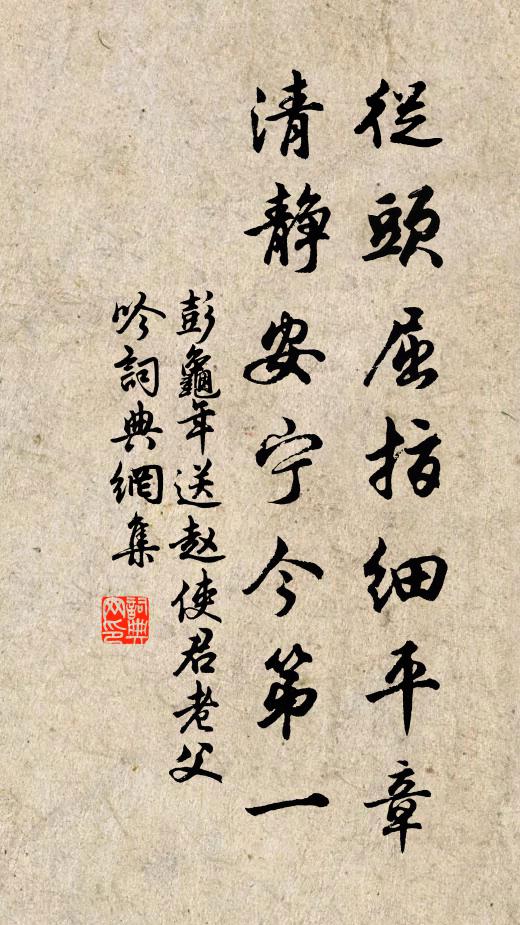 從頭屈指細平章
清静安宁今第一
彭龜年送赵使君老父
吟詞典網集
詞典
网印